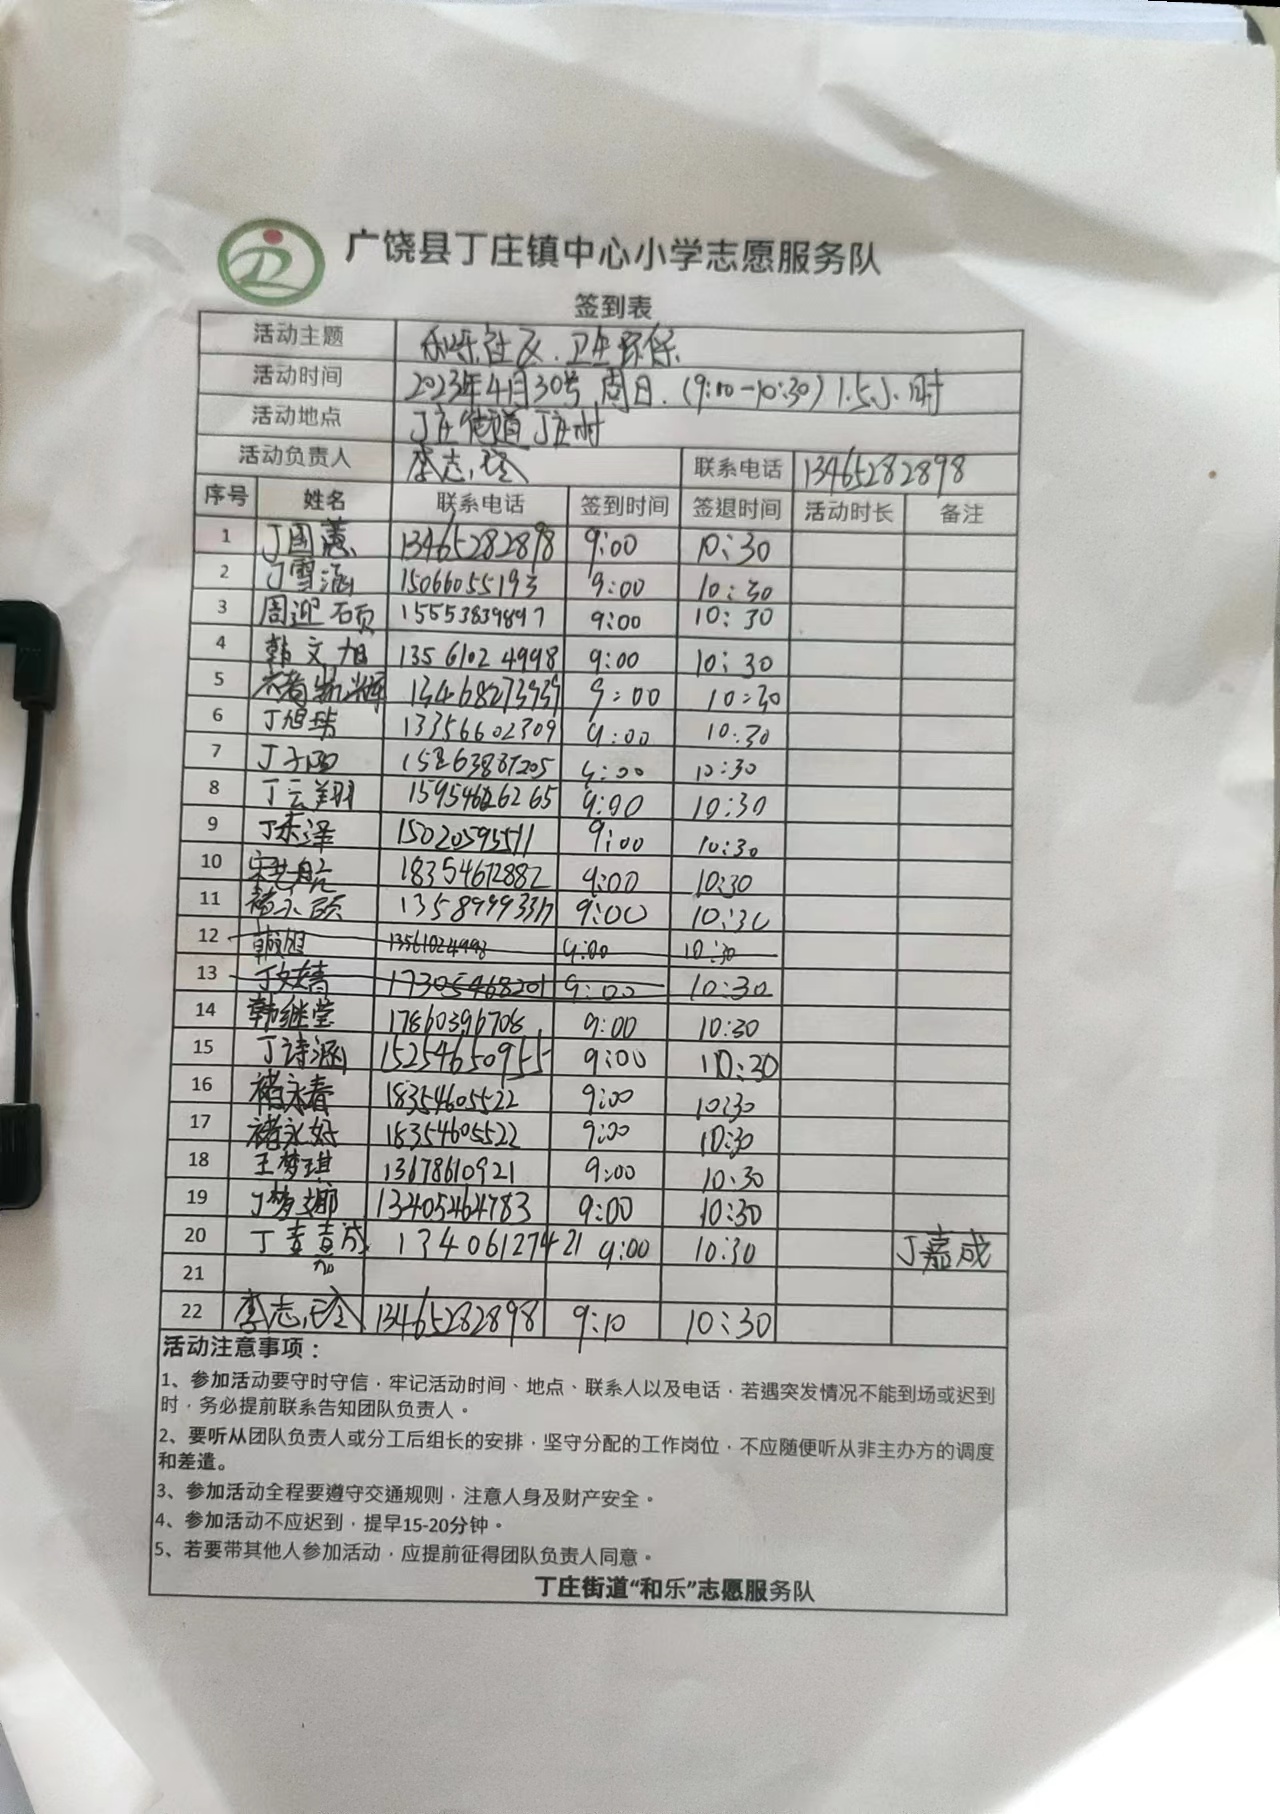 广饶县丁庄镇中心小学志愿服务队
签到表
活动主题 和乐社区.卫生环保
活动时间 2023年4月30号 周日.(9:00-10:30)1.5小时
活动地点 丁庄街道丁庄村
活动负责人 李志 联系电话 13465282898
序号 姓名 联系电话 签到时间 签退时间 活动时长 备注
1 丁国蕙 13465282898 9:00 10:30
2 丁雪涵 15066055193 9:00 10:30
3 周迎硕 15553839897 9:00 10:30
4 韩文旭 13561024998 9:00 10:30
5 13468273939 9:00 10:30
6 丁旭 13356602309 9:00 10:30
7 丁子 9:00 10:30
8 丁云翔 9:00 10:30
9 丁 泽 15020595511 9:00 10:30
10 宋艺航 18354672882 9:00 10:30
11 褚永硕 9:00 10:30
12 韩文旭 13561024998 9:00 10:30
13 丁文婧 17305468201 9:00 10:30
14 韩继莹 17860396708 9:00 10:30
15 丁诗涵 15254650955 9:00 10:30
16 褚永春 18354605522 9:00 10:30
17 褚永好 18354605522 9:00 10:30
18 王梦琪 13678610921 9:00 10:30
19 丁梦娜 13405464783 9:00 10:30
20 丁 成 13406127421 9:00 10:30 丁嘉成
21
22 李志 13465282898 9:10 10:30
活动注意事项：
1、参加活动要守时守信，牢记活动时间、地点、联系人以及电话，若遇突发情况不能到场或迟到
时，务必提前联系告知团队负责人。
2、要听从团队负责人或分工后组长的安排，坚守分配的工作岗位，不应随便听从非主办方的调度
和差遣。
3、参加活动全程要遵守交通规则，注意人身及财产安全。
4、参加活动不应迟到，提早15-20分钟。
5、若要带其他人参加活动，应提前征得团队负责人同意。
丁庄街道“和乐”志愿服务队